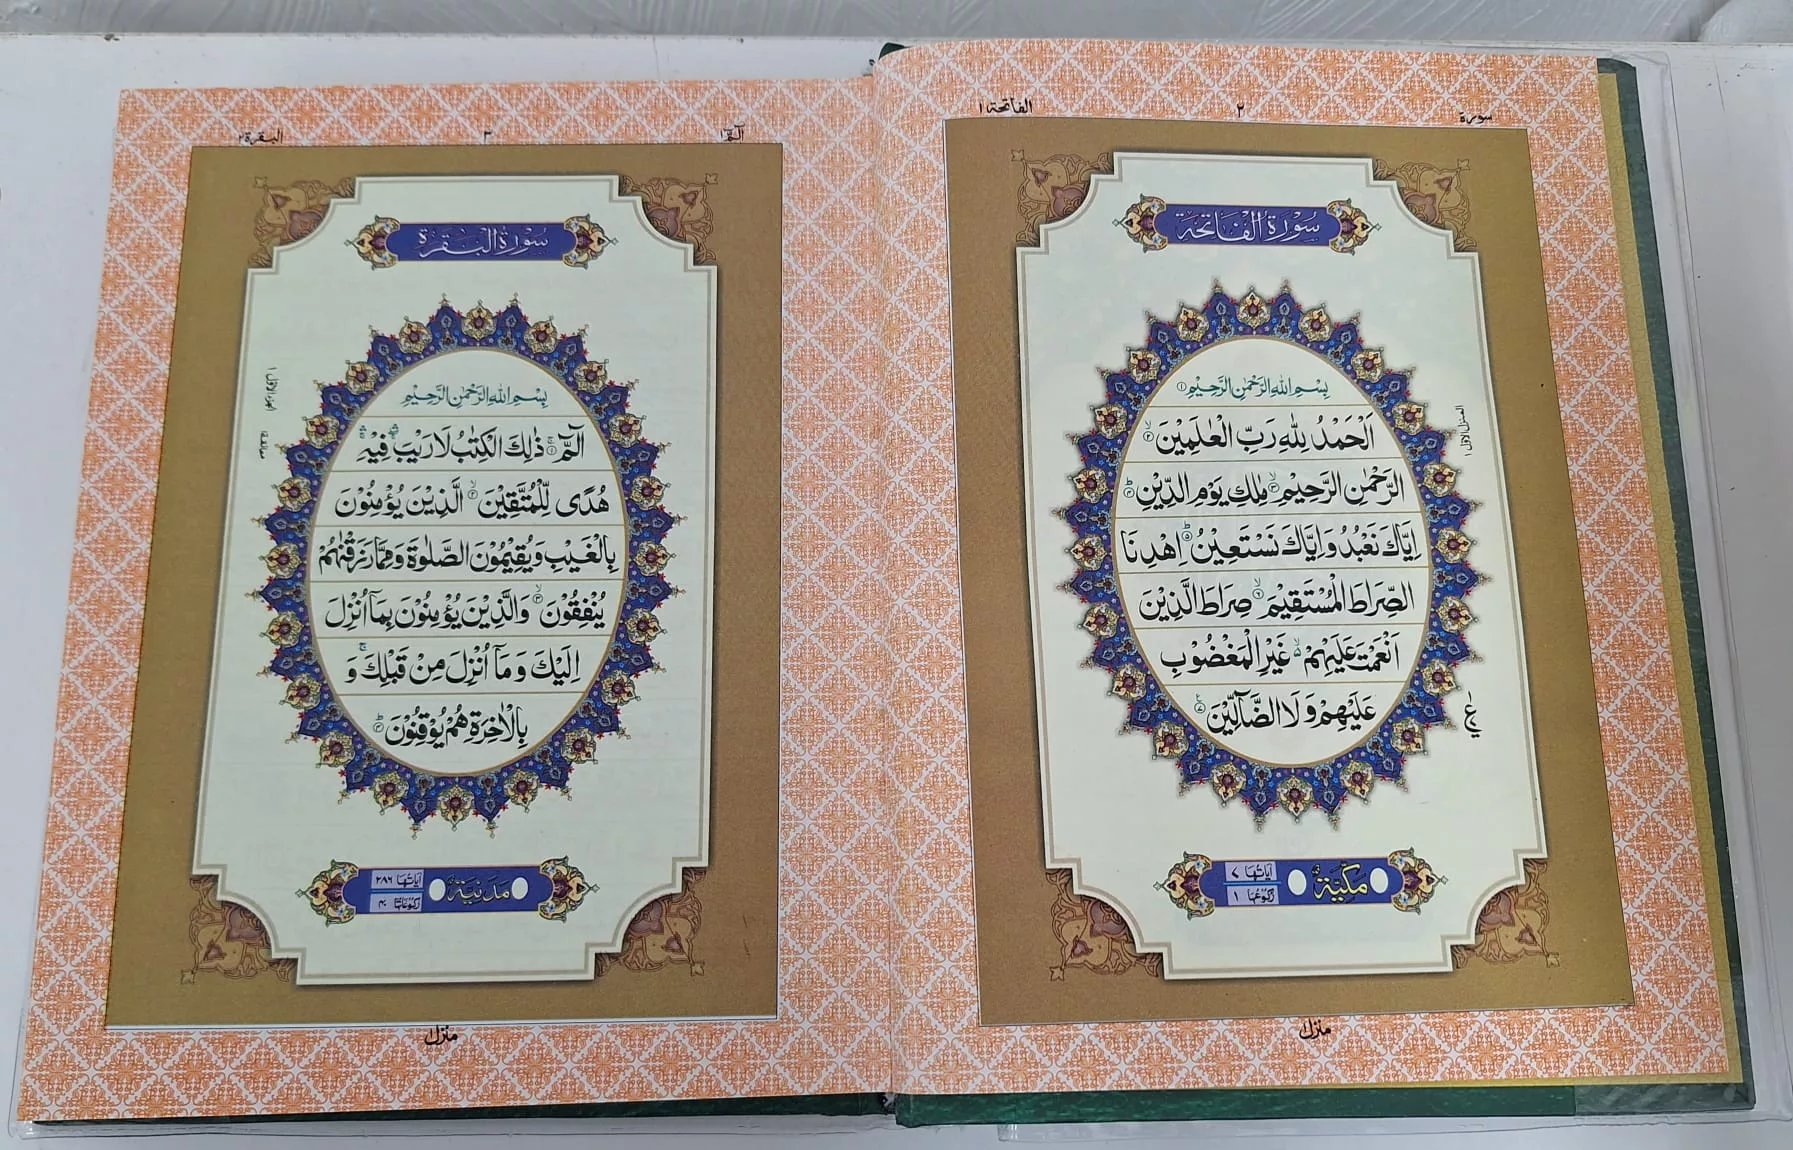 سورة
٢
الفاتحة ١
سُوْرَةُ الْفَاتِحَة
بِسْمِ اللّٰهِ الرَّحْمٰنِ الرَّحِيْمِ ۝١
اَلْحَمْدُ لِلّٰهِ رَبِّ الْعٰلَمِيْنَ ۙ۝٢
الرَّحْمٰنِ الرَّحِيْمِ ۙ۝٣ مٰلِكِ يَوْمِ الدِّيْنِ ۭ۝
اِيَّاكَ نَعْبُدُ وَاِيَّاكَ نَسْتَعِيْنُ ۭ۝ اِهْدِنَا
الصِّرَاطَ الْمُسْتَقِيْمَ ۙ۝٦ صِرَاطَ الَّذِيْنَ
اَنْعَمْتَ عَلَيْهِمْ ۙ۬ غَيْرِ الْمَغْضُوْبِ
عَلَيْهِمْ وَلَا الضَّآلِّيْنَ ۝
المنزل الاول ١
ع
اٰيَاتُهَا ٧
مَكِّيَّةٌ
رُكُوْعُهَا ١
منزل١
الٓمّٓ ١
٣
البقرة ٢
سُوْرَةُ الْبَقَرَة
بِسْمِ اللّٰهِ الرَّحْمٰنِ الرَّحِيْمِ
الٓمّٓ ۚ۝١ ذٰلِكَ الْكِتٰبُ لَا رَيْبَ ۛ فِيْهِ ۛ
هُدًى لِّلْمُتَّقِيْنَ ۙ۝٢ الَّذِيْنَ يُؤْمِنُوْنَ
بِالْغَيْبِ وَيُقِيْمُوْنَ الصَّلٰوةَ وَمِمَّا رَزَقْنٰهُمْ
يُنْفِقُوْنَ ۙ۝٣ وَالَّذِيْنَ يُؤْمِنُوْنَ بِمَآ اُنْزِلَ
اِلَيْكَ وَمَآ اُنْزِلَ مِنْ قَبْلِكَ ۚ وَ
بِالْاٰخِرَةِ هُمْ يُوْقِنُوْنَ ۭ۝
معانقة١
اٰيَاتُهَا ٢٨٦
مَدَنِيَّةٌ
رُكُوْعَاتُهَا ٤٠
منزل١